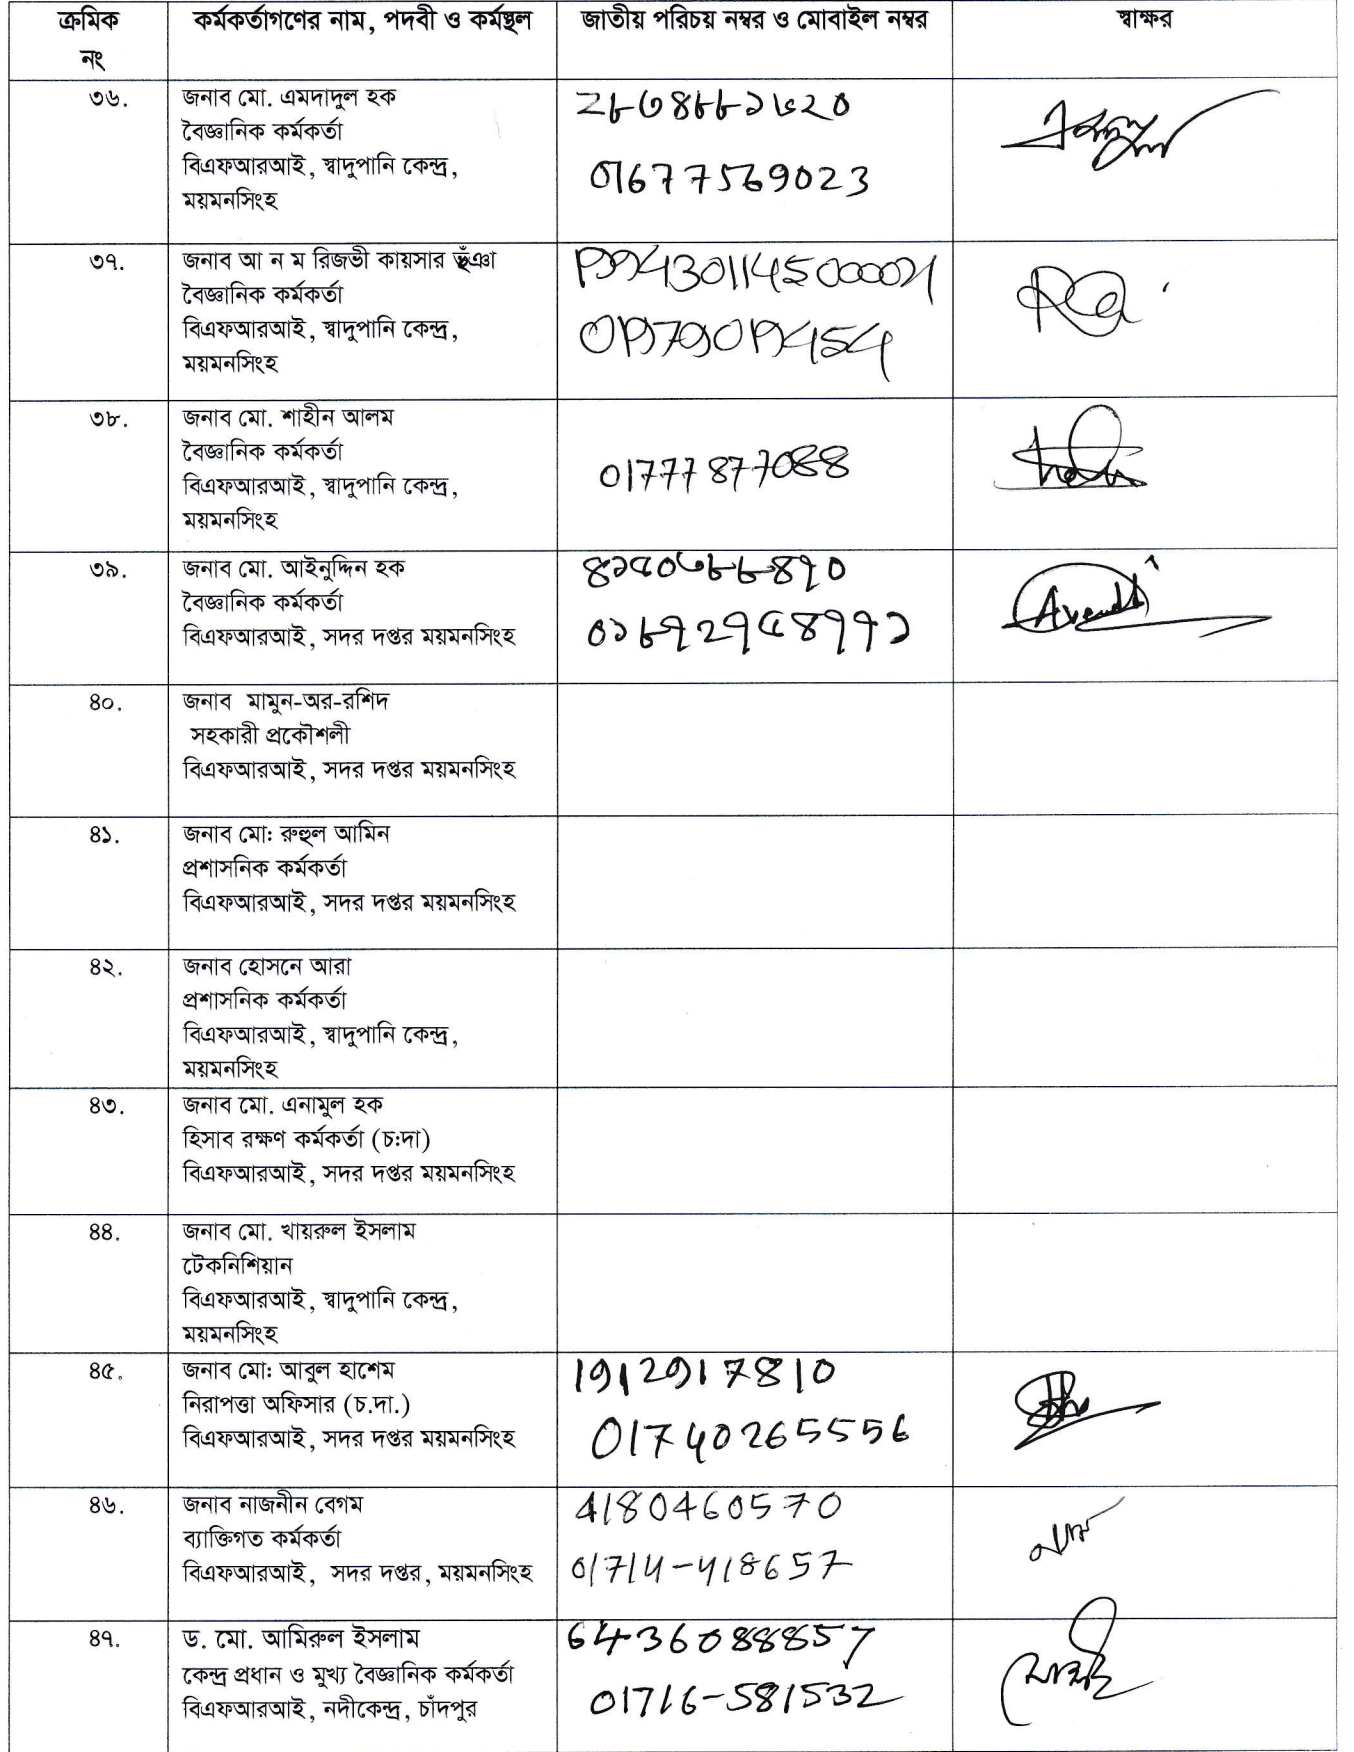 ক্রমিক নং
কর্মকর্তাগণের নাম, পদবী ও কর্মস্থল
জাতীয় পরিচয় নম্বর ও মোবাইল নম্বর
স্বাক্ষর
৩৬.
জনাব মো. এমদাদুল হক
বৈজ্ঞানিক কর্মকর্তা
বিএফআরআই, স্বাদুপানি কেন্দ্র,
ময়মনসিংহ
01677569023
৩৭.
জনাব আ ন ম রিজভী কায়সার ভূঁঞা
বৈজ্ঞানিক কর্মকর্তা
বিএফআরআই, স্বাদুপানি কেন্দ্র,
ময়মনসিংহ
৩৮.
জনাব মো. শাহীন আলম
বৈজ্ঞানিক কর্মকর্তা
বিএফআরআই, স্বাদুপানি কেন্দ্র,
ময়মনসিংহ
01777877088
৩৯.
জনাব মো. আইনুদ্দিন হক
বৈজ্ঞানিক কর্মকর্তা
বিএফআরআই, সদর দপ্তর ময়মনসিংহ
৪০.
জনাব মামুন-অর-রশিদ
সহকারী প্রকৌশলী
বিএফআরআই, সদর দপ্তর ময়মনসিংহ
৪১.
জনাব মো: রুহুল আমিন
প্রশাসনিক কর্মকর্তা
বিএফআরআই, সদর দপ্তর ময়মনসিংহ
৪২.
জনাব হোসনে আরা
প্রশাসনিক কর্মকর্তা
বিএফআরআই, স্বাদুপানি কেন্দ্র,
ময়মনসিংহ
৪৩.
জনাব মো. এনামুল হক
হিসাব রক্ষণ কর্মকর্তা (চ:দা)
বিএফআরআই, সদর দপ্তর ময়মনসিংহ
৪৪.
জনাব মো. খায়রুল ইসলাম
টেকনিশিয়ান
বিএফআরআই, স্বাদুপানি কেন্দ্র,
ময়মনসিংহ
৪৫.
জনাব মো: আবুল হাশেম
নিরাপত্তা অফিসার (চ.দা.)
বিএফআরআই, সদর দপ্তর ময়মনসিংহ
1912917810
01740265556
৪৬.
জনাব নাজনীন বেগম
ব্যাক্তিগত কর্মকর্তা
বিএফআরআই, সদর দপ্তর, ময়মনসিংহ
4180460570
01714-418657
৪৭.
ড. মো. আমিরুল ইসলাম
কেন্দ্র প্রধান ও মুখ্য বৈজ্ঞানিক কর্মকর্তা
বিএফআরআই, নদীকেন্দ্র, চাঁদপুর
6436088857
01716-581532